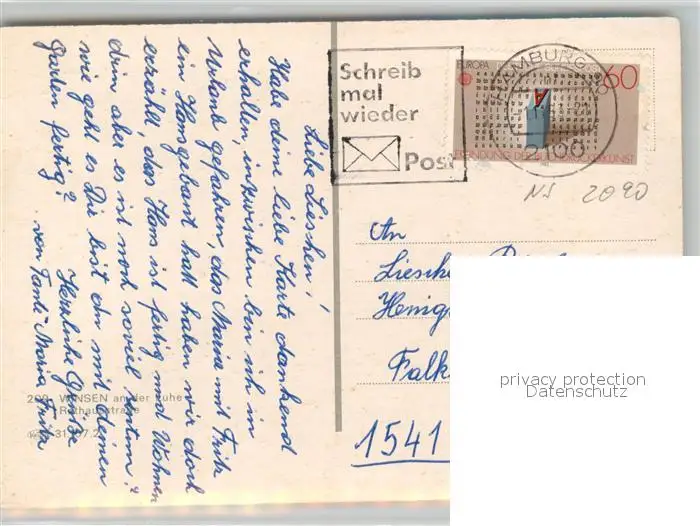 Liebe Lieschen!
Habe deine liebe Karte dankend
erhalten, inzwischen bin ich in
Urlaub gefahren, das Marie mit Fritz
ein Hausgebaut hatt haben wir doch
erzählt, das Haus ist fertig und Wohnen
drin aber es ist noch soviel zutun?
wie geht es Dir bist du mit deinen
Garten fertig?
Herzliche Grüße
von Tante Maria Fritz
WINSEN an der Luhe
Rathausstraße
Schreib
mal
wieder
Post
EUROPA
60
HAMBURG
2100
ERFINDUNG DER BUCHDRUCKERKUNST
NJ 2090
An
Liesche
Henig
Falk
1541
privacy protection
Datenschutz